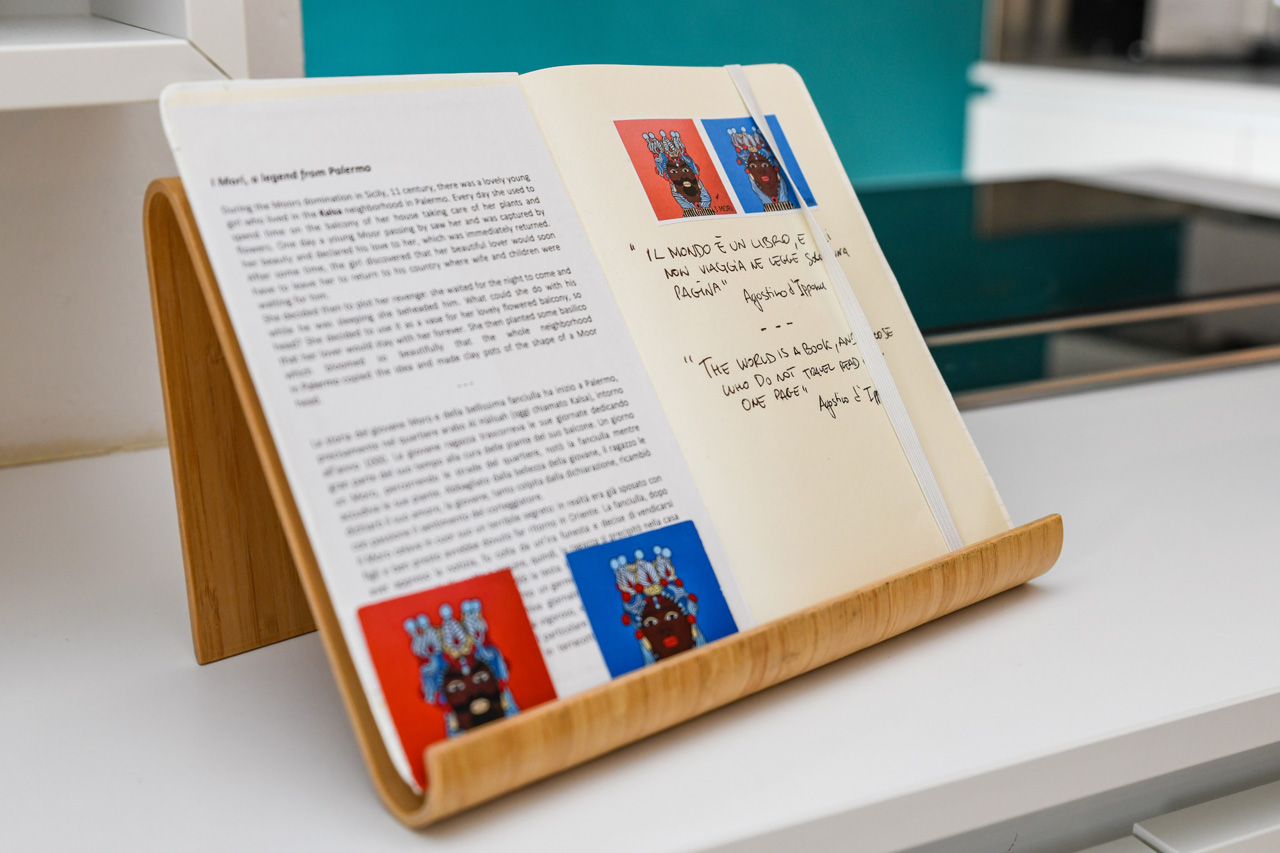 I Mori, a legend from Palermo
During the Moors domination in Sicily, 11 century, there was a lovely young
girl who lived in the Kalsa neighborhood in Palermo. Every day she used to
spend time on the balcony of her house taking care of her plants and
flowers. One day a young Moor passing by saw her and was captured by
her beauty and declared his love to her, which was immediately returned.
After some time, the girl discovered that her beautiful lover would soon
have to leave her to return to his country where wife and children were
waiting for him.
She decided then to plot her revenge: she waited for the night to come and
while he was sleeping she beheaded him. What could she do with his
head? She decided to use it as a vase for her lovely flowered balcony, so
that her lover would stay with her forever. She then planted some basilico
which bloomed so beautifully that the whole neighborhood
in Palermo copied the idea and made clay pots of the shape of a Moor
head.
---
La storia del giovane Moro e della bellissima fanciulla ha inizio a Palermo,
precisamente nel quartiere arabo Al Hàlisah (oggi chiamato Kalsa), intorno
all'anno 1000. La giovane ragazza trascorreva le sue giornate dedicando
gran parte del suo tempo alla cura delle piante del suo balcone. Un giorno
un Moro, percorrendo le strade del quartiere, notò la fanciulla mentre
accudiva le sue piante. Abbagliato dalla bellezza della giovane, il ragazzo le
dichiarò il suo amore, la giovane, tanto colpita dalla dichiarazione, ricambiò
con passione il sentimento del corteggiatore.
Il Moro celava in cuor suo un terribile segreto: in realtà era già sposato con
figli e ben presto avrebbe dovuto far ritorno in Oriente. La fanciulla, dopo
aver appreso la notizia, fu colta da un'ira funesta e decise di vendicarsi
I MORI
"IL MONDO È UN LIBRO, E
NON VIAGGIA NE LEGGE SOLO UNA
PAGINA" Agostino d'Ippona
---
"THE WORLD IS A BOOK, AND THOSE
WHO DO NOT TRAVEL READ
ONE PAGE" Agostino d'Ipp